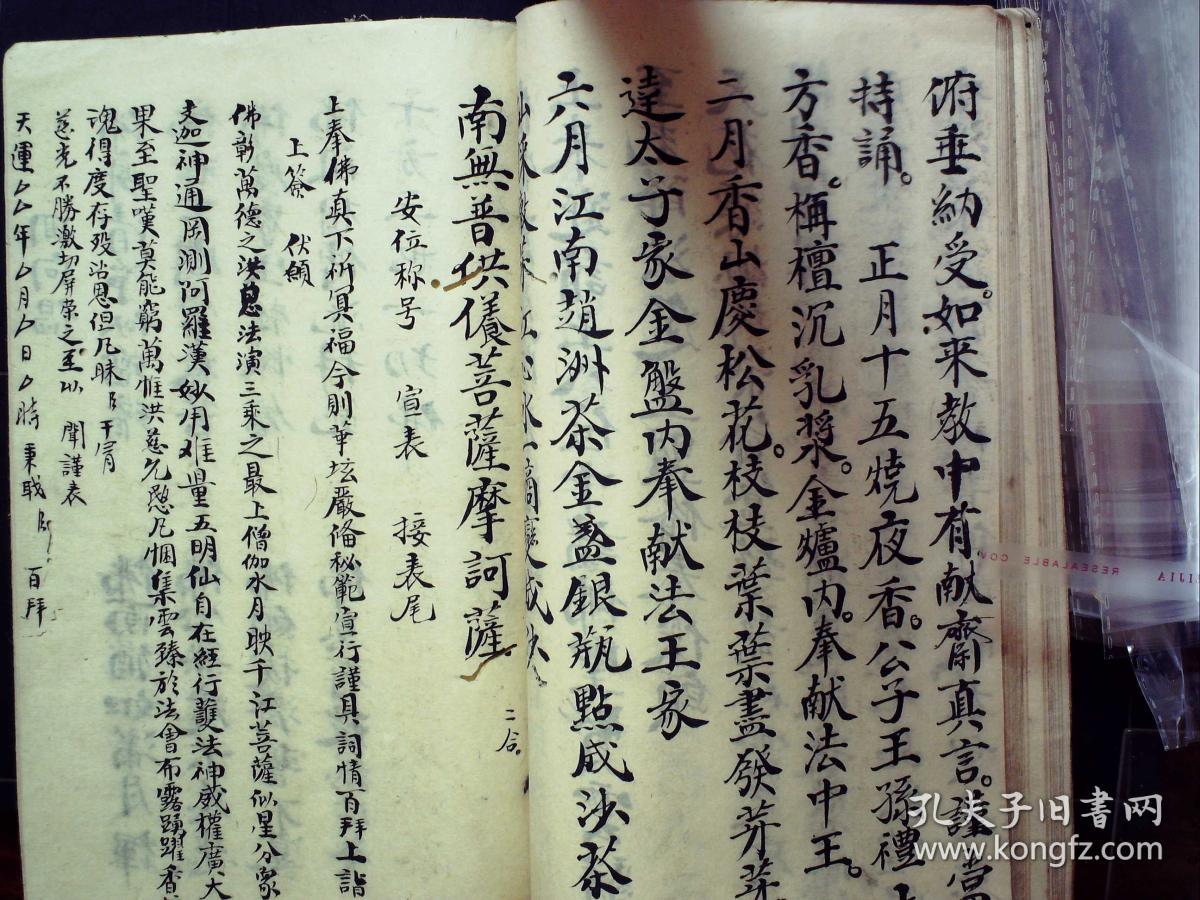 俯垂納受。如来教中有献齋真言。謹當
持誦。 正月十五燒夜香。公子王孫禮
方香。栴檀沉乳漿。金爐內。奉献法中王。
二月香山慶松花。枝枝葉葉盡發芽
達太子家金盤内奉献法王家
六月江南趙洲茶金盞銀瓶點成沙茶
南無普供儀菩薩摩訶薩。
二合。
安位称号 宣表 接表尾
上奉佛真下祈冥福今則華坛嚴俻秘範宣行謹具詞情百拜上詣
上签 伏願
佛彰萬德之洪恩法演三乘之最上僧伽水月映千江菩薩似星分象
神通罔測阿羅漢妙用难量五明仙自在經行護法神威權廣大
果至聖嘆莫能窮萬惟洪慈允愍凡悃集雲臻於法會布露踴躍香
魂得度存殁沾恩但凡昧臣 干冐
慈光不勝激切屏荣之至以 聞謹表
天運厶厶年厶月厶日厶時 秉職臣 百拜
孔夫子旧書网
www.kongfz.com
RESEALABLE